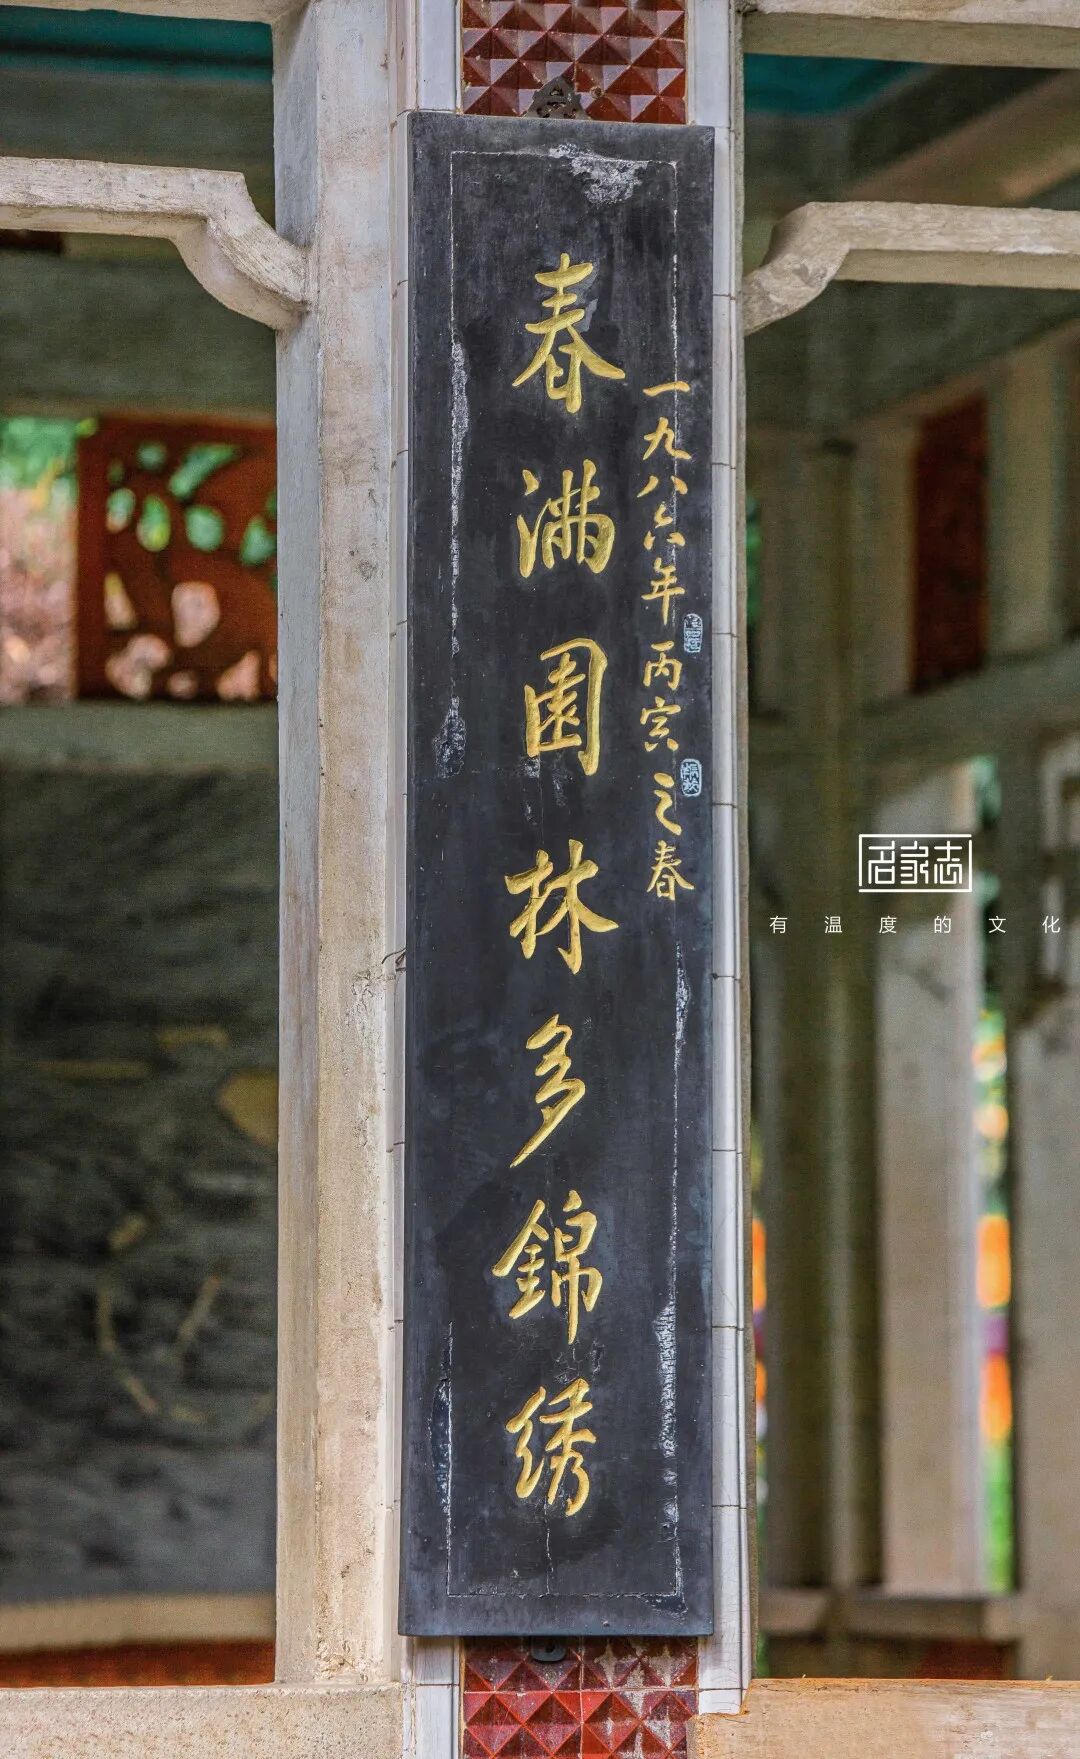 一九八六年丙寅之春
春满園林多錦绣
名家志
有温度的文化